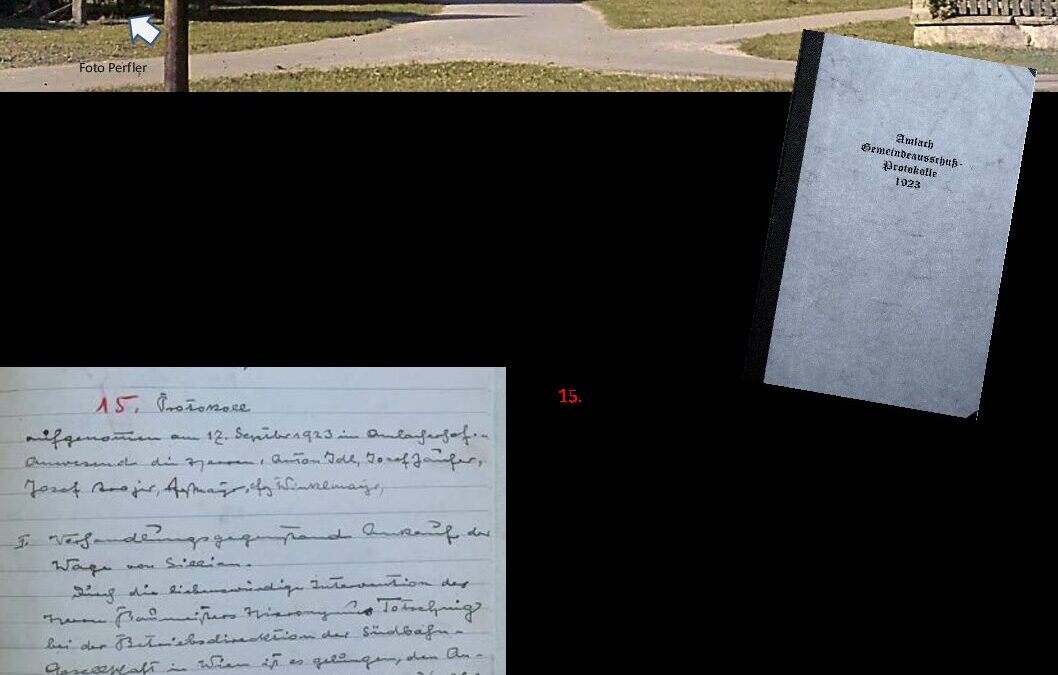 Foto Perfler
Amlach
Gemeindeausschuß-
Protokolle
1923
15.
15. Protokoll
aufgenommen am 12. Septber 1923 im Amlacherhof.
Anwesend die Herren, Anton Idl, Josef
Josef
I. Verhandlungsgegenstand Ankauf der
Wage von Sillian.
Durch die liebenswürdige Intervention des
Herrn Baumeisters Hieronymus Totschnig
bei der Betriebsdirektion der Südbahn-
Gesellschaft in Wien ist es gelungen, den An-